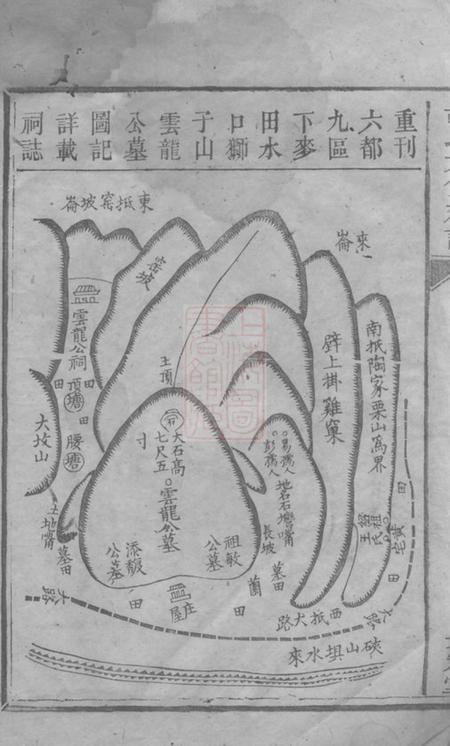 重刊
六都
九區
下麥
田水
口獅
于山
雲龍
公墓
圖記
詳載
祠誌
東抵窑坡崙
來崙
窑坡
雲龍公祠
頂塘
田
田
田
腰塘
大坟山
土地嘴
墓田
大路
主頂
大石高
七尺五
寸
雲龍公墓
祖敏
公墓
添馥
公墓
莊屋
田
田
易孺人
彭孺人
地名石嘴
長坡
墓田
蘭
壁上掛雞窠
南抵陶家栗山為界
紹祖
王氏
黃宅
田
田
大路
西抵大路
硤山垻水來